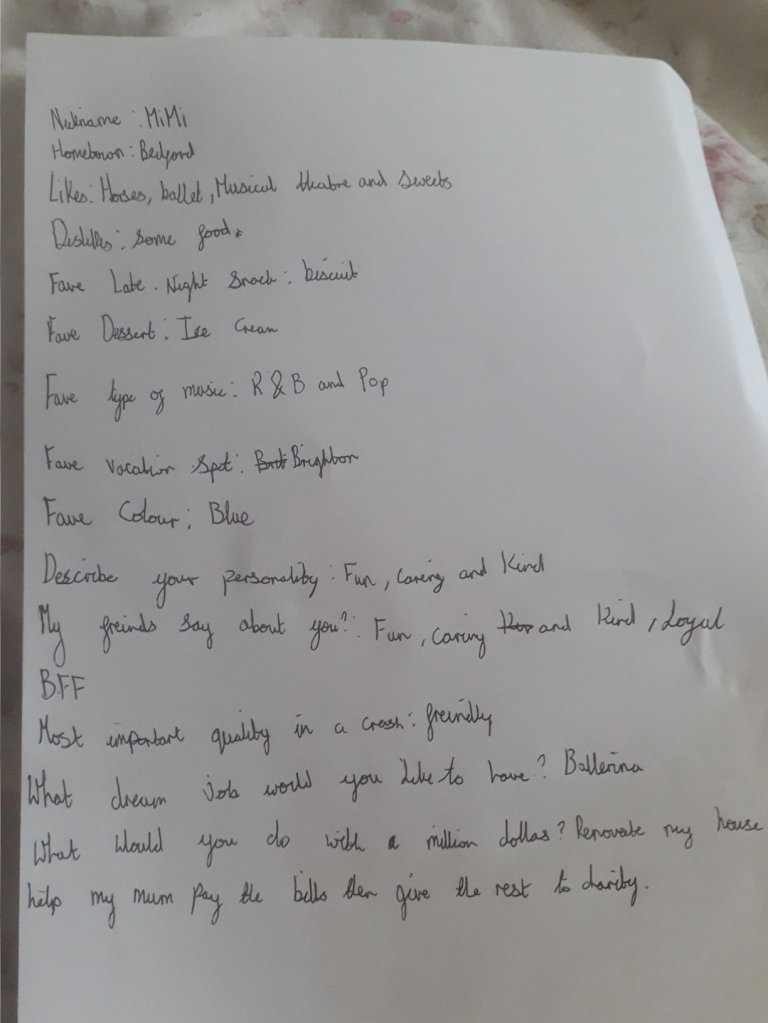 Nickname : MiMi
Hometown : Bedford
Likes: Horses, ballet, Musical theatre and sweets
Dislikes: some food.
Fave Late. Night Snack: biscuit
Fave Dessert: Ice Cream
Fave type of music: R & B and Pop
Fave vacation spot: Brighton
Fave Colour; Blue
Describe your personality: Fun, caring and Kind
My freinds say about you?: Fun, caring and kind, Loyal
BFF
Most important quality in a crush: freindly
What dream job would you like to have? Ballerina
What Would you do with a million dollas? Renovate my house
help my mum pay the bills then give the rest to charity.